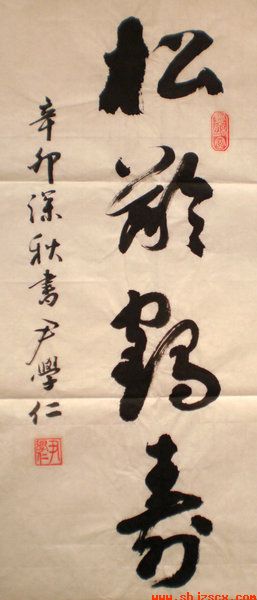 松龄鹤寿
辛卯深秋书尹學仁
www.shjzscx.com